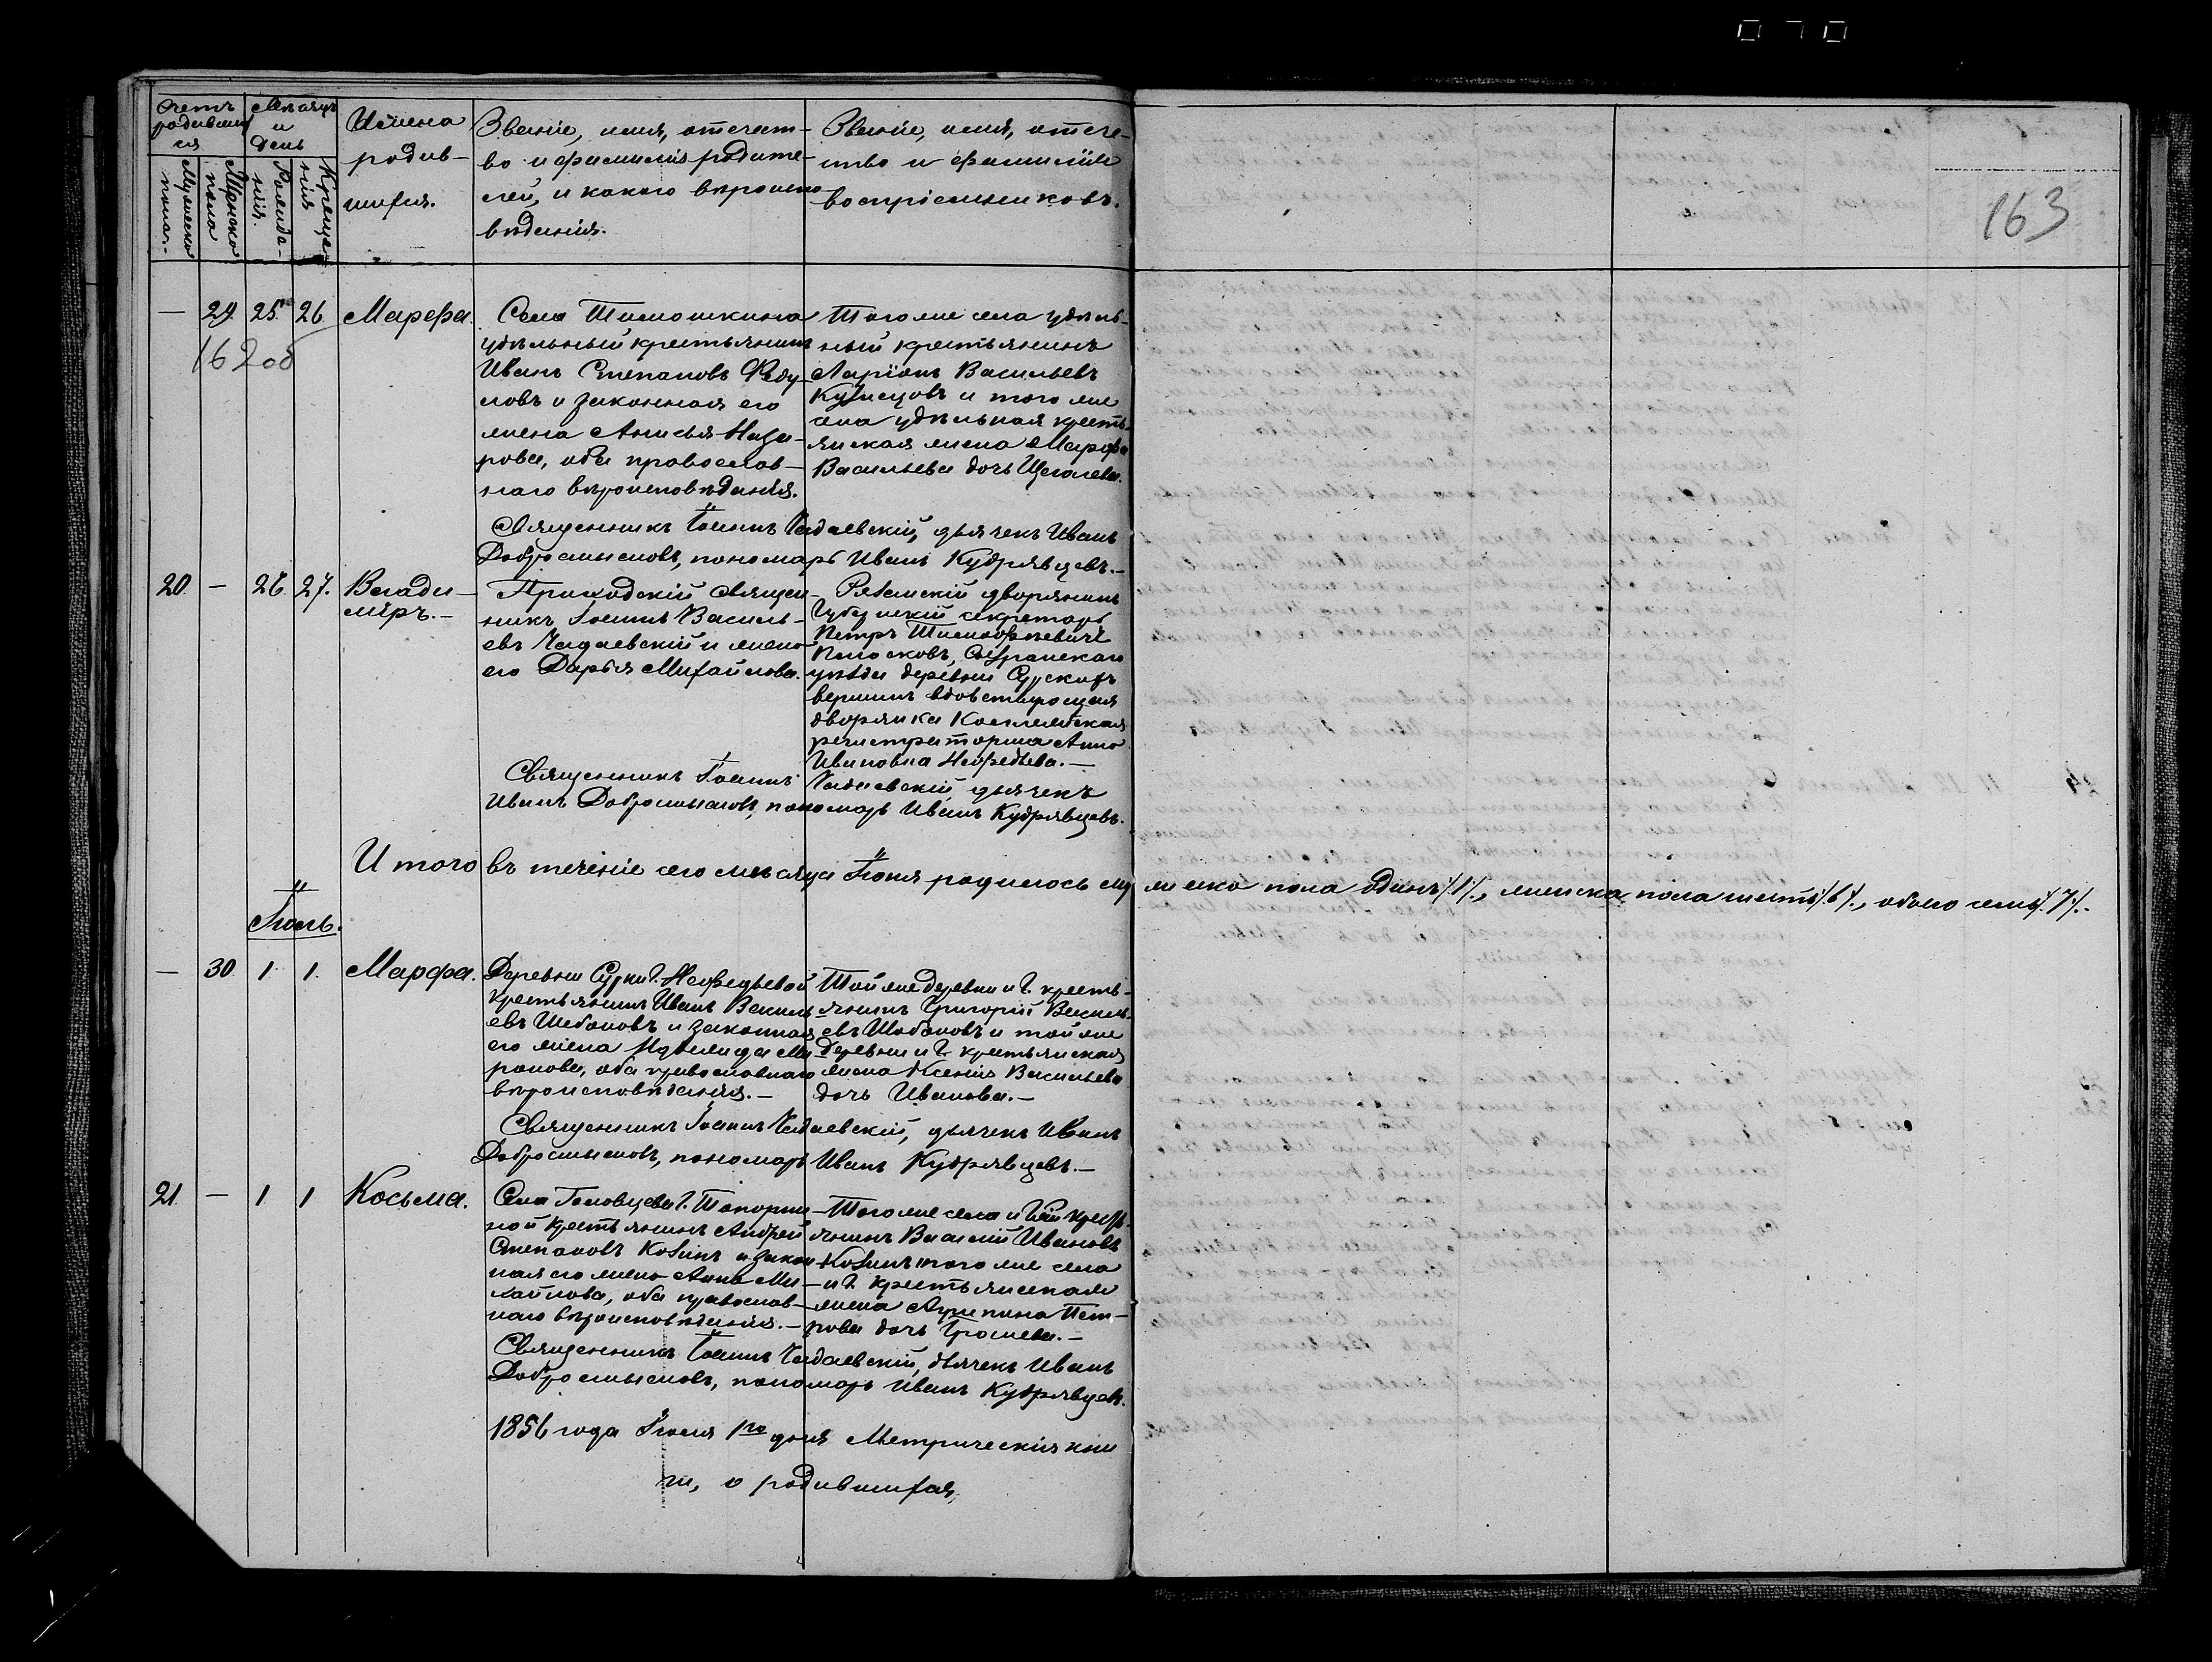 163
Счетъ родившихся
Мѣсяцъ и день
Имена родив-
шихся.
Званіе, имя, отечест-
во и фамилія родите-
лей, и какого вѣроиспо-
вѣданія.
Званіе, имя, отече-
ство и фамилія
воспріемниковъ.
Мужеска пола.
Женска пола
Рожде-нія.
Креще-нія
— 29. 25. 26 Марфа.
162об
Села Тимошкина
удѣльный крестьянинъ
Иванъ Степановъ Феду-
ловъ и законная его
жена Анисья Наза-
рова, оба православ-
наго вѣроисповѣданія.
Того же села удѣль-
ный крестьянинъ
Ларіонъ Васильевъ
Кузнецовъ и того же
села удѣльная кресть-
янская жена Марфа
Васильева дочь Щеголева.
Священникъ Іоаннъ Чадаевскій, дьячекъ Иванъ
Добросмысловъ, пономарь Иванъ Кудрявцевъ.—
20 — 26. 27. Влади-
міръ.—
Приходскій священ-
никъ Іоаннъ Василь-
евъ Чадаевскій и жена
его Дарья Михайлова.
Рязанскій дворянинъ
Губернскій секретарь
Петръ Тимофѣевичъ
Полосковъ, Сызранскаго
уѣзда деревни Сурскихъ
вершинъ вдовствующая
дворянка Коллежская
регистраторша Анна
Ивановна Нефедьева.—
Священникъ Іоаннъ Чадаевскій дьячекъ
Иванъ Добросмысловъ, пономарь Иванъ Кудрявцевъ.
Итого въ теченіе сего мѣсяца Іюня родилось мужеска пола одинъ /1/., женска пола шесть /6/., обоего семь /7/.
Іюль.
— 30 1 1. Марфа.
Деревни Сурки Г. Нефедьевой
крестьянинъ Иванъ Василь-
евъ Шабановъ и законная
его жена Ми-
ронова, оба православнаго
вѣроисповѣданія.—
Той же деревни и Г. кресть-
янинъ Григорій Василь-
евъ Шабановъ и той же
деревни и Г. крестьянская
жена Ксенія Васильева
дочь Иванова.—
Священникъ Іоаннъ Чадаевскій, дьячекъ Иванъ
Добросмысловъ, пономарь Иванъ Кудрявцевъ.—
21. — 1 1 Косьма.
Села Головцева Г. Топорни-
ной крестьянинъ Андрей
Степановъ Козинъ и закон-
ная его жена Анна Ми-
хайлова, оба православ-
наго вѣроисповѣданія.—
Того же села и Г-жи кресть-
янинъ Василій Ивановъ
Козинъ того же села
и Г. крестьянская
жена Агрипина Пет-
рова дочь Трошева.—
Священникъ Іоаннъ Чадаевскій, дьячекъ Иванъ
Добросмысловъ, пономарь Иванъ Кудрявцевъ.
1856 года Іюля 1го дня Метрическія кни
ги, о родившихся,